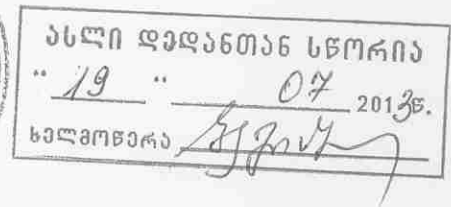 ასლი დედანთან სწორია
" 19 " 07 2013წ.
ხელმოწერა